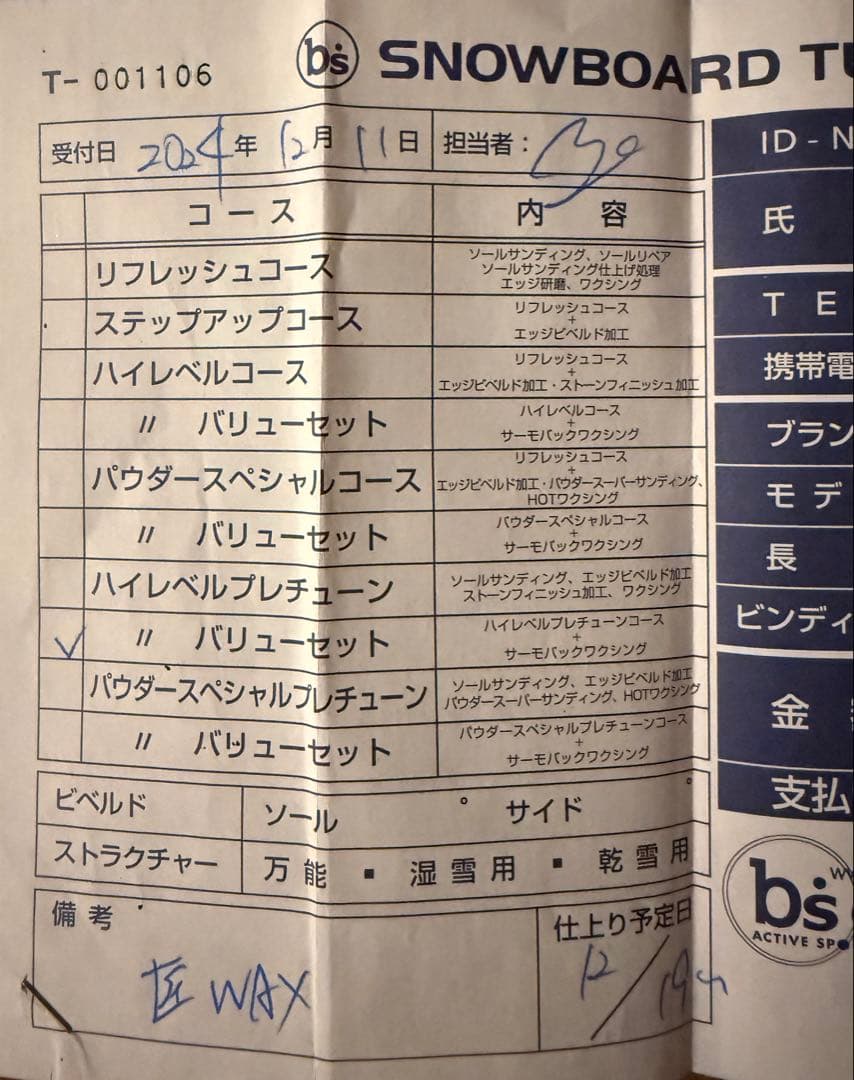 T- 001106
b's SNOWBOARD TU
受付日 2024年 12月 11日 担当者：
コース 内容
リフレッシュコース
ソールサンディング、ソールリペア
ソールサンディング仕上げ処理
エッジ研磨、ワクシング
ステップアップコース
リフレッシュコース
+
エッジビベルド加工
ハイレベルコース
リフレッシュコース
+
エッジビベルド加工・ストーンフィニッシュ加工
〃 バリューセット
ハイレベルコース
+
サーモバックワクシング
パウダースペシャルコース
リフレッシュコース
+
エッジビベルド加工・パウダースーパーサンディング、
HOTワクシング
〃 バリューセット
パウダースペシャルコース
+
サーモバックワクシング
ハイレベルプレチューン
ソールサンディング、エッジビベルド加工
ストーンフィニッシュ加工、ワクシング
✓ 〃 バリューセット
ハイレベルプレチューンコース
+
サーモバックワクシング
パウダースペシャルプレチューン
ソールサンディング、エッジビベルド加工
パウダースーパーサンディング、HOTワクシング
〃 バリューセット
パウダースペシャルプレチューンコース
+
サーモバックワクシング
ビベルド ソール ° サイド °
ストラクチャー 万能 ・ 湿雪用 ・ 乾雪用
備考
匠 WAX
仕上り予定日
12/19
ID-N
氏
TE
携帯電
ブラン
モデ
長
ビンディ
金
支払
b's
ACTIVE SP